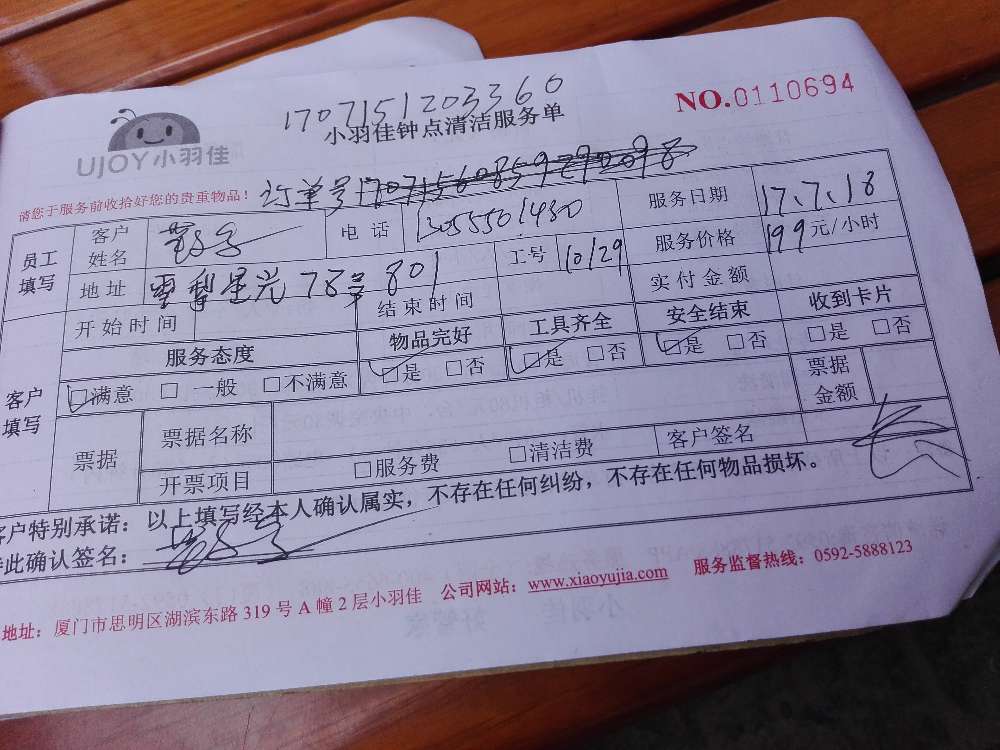 1707151203360
NO.0110694
小羽佳钟点清洁服务单
UJOY小羽佳
请您于服务前收拾好您的贵重物品！ 订单号
员工填写 客户姓名 电话 13055501430 服务日期 17.7.18
地址 雪梨星光 78号 801 工号 10129 服务价格 199 元/小时
开始时间 结束时间 实付金额
客户填写 服务态度 物品完好 工具齐全 安全结束 收到卡片
□满意 □ 一般 □不满意 □是 □否 □是 □否 □是 □否 □是 □否
票据 票据名称 票据金额
开票项目 □服务费 □清洁费 客户签名
客户特别承诺：以上填写经本人确认属实，不存在任何纠纷，不存在任何物品损坏。
特此确认签名：
地址：厦门市思明区湖滨东路 319 号 A 幢 2 层小羽佳 公司网站：www.xiaoyujia.com 服务监督热线：0592-5888123